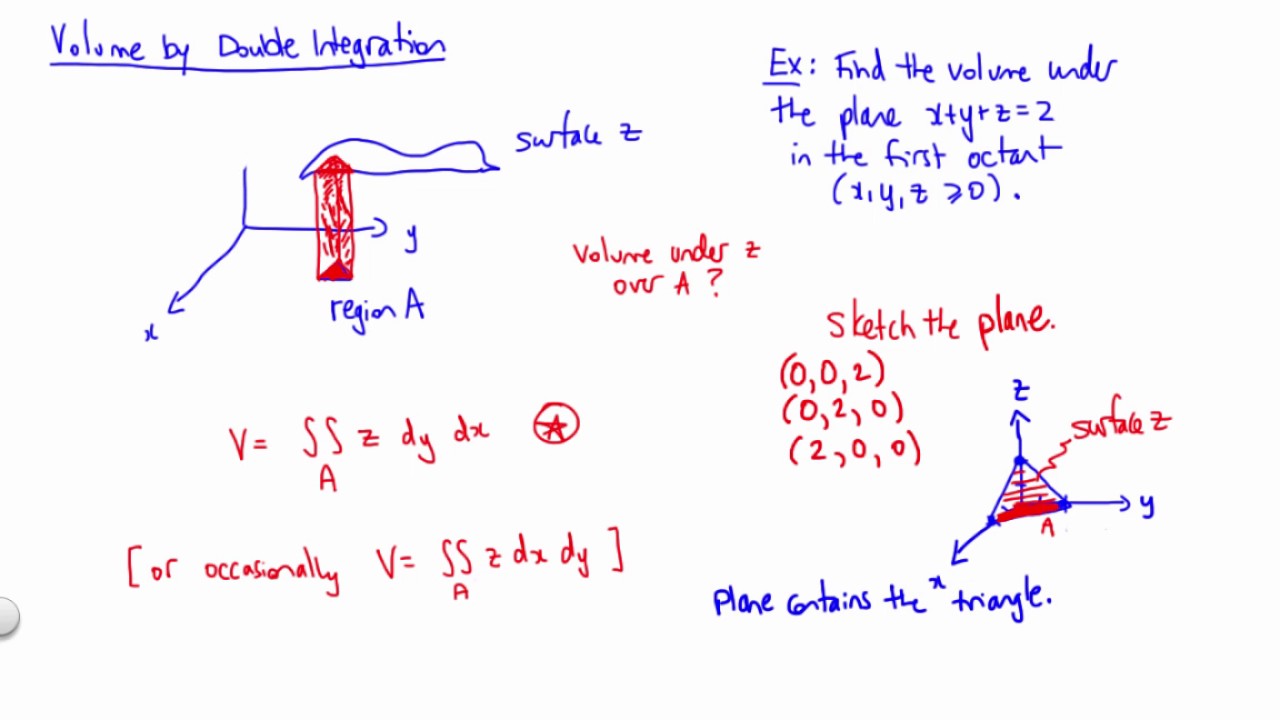 Volume by Double Integration
surface z
y
x
region A
Volume under z
over A ?
V= ∬ z dy dx ⊛
A
[or occasionally V= ∬ z dx dy ]
A
Ex: Find the volume under
the plane x+y+z=2
in the first octant
(x,y,z ≥0).
Sketch the plane.
(0,0,2)
(0,2,0)
(2,0,0)
z
surface z
y
A
x
Plane contains the triangle.